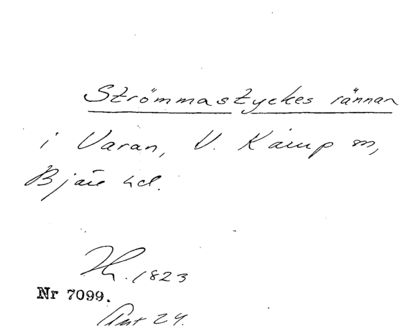 Strömmastyckes rännan
i Varan, V. Karup sn,
Bjäre hd.
Th. 1823
Nr 7099.
Ant 24.